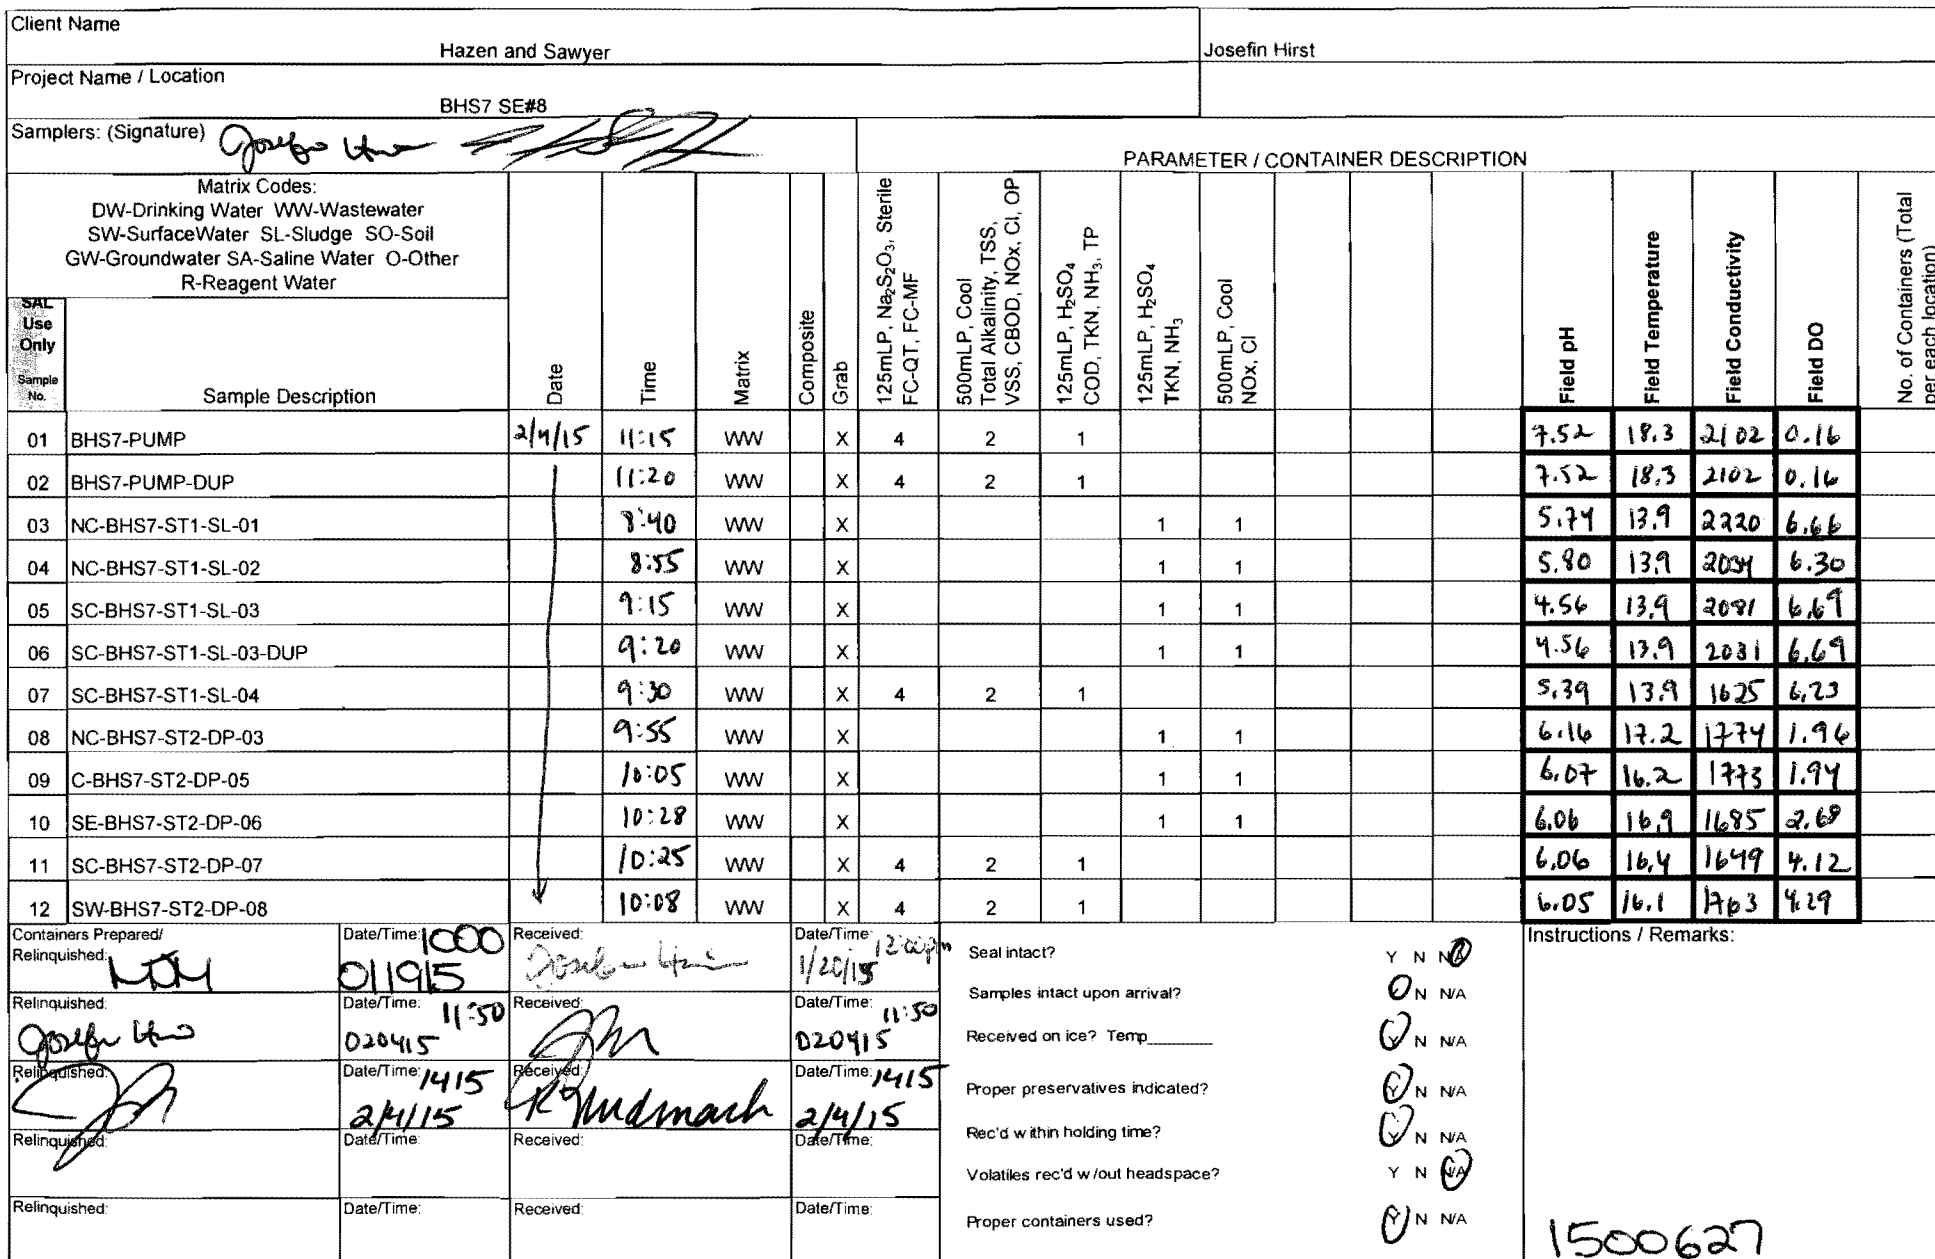 Client Name
Hazen and Sawyer
Josefin Hirst
Project Name / Location
BHS7 SE#8
Samplers: (Signature) Josefin Hirst
PARAMETER / CONTAINER DESCRIPTION
Matrix Codes:
DW-Drinking Water WW-Wastewater
SW-SurfaceWater SL-Sludge SO-Soil
GW-Groundwater SA-Saline Water O-Other
R-Reagent Water
SAL
Use
Only
Sample
No.
Sample Description
Date
Time
Matrix
Composite
Grab
125mLP, Na2S2O3, Sterile
FC-QT, FC-MF
500mLP, Cool
Total Alkalinity, TSS,
VSS, CBOD, NOx, Cl, OP
125mLP, H2SO4
COD, TKN, NH3, TP
125mLP, H2SO4
TKN, NH3
500mLP, Cool
NOx, Cl
Field pH
Field Temperature
Field Conductivity
Field DO
No. of Containers (Total
per each location)
01 BHS7-PUMP 2/4/15 11:15 WW X 4 2 1 7.52 18.3 2102 0.16
02 BHS7-PUMP-DUP 11:20 WW X 4 2 1 7.52 18.3 2102 0.16
03 NC-BHS7-ST1-SL-01 8:40 WW X 1 1 5.74 13.9 2220 6.66
04 NC-BHS7-ST1-SL-02 8:55 WW X 1 1 5.80 13.9 2034 6.30
05 SC-BHS7-ST1-SL-03 9:15 WW X 1 1 4.56 13.9 2081 6.69
06 SC-BHS7-ST1-SL-03-DUP 9:20 WW X 1 1 4.56 13.9 2081 6.69
07 SC-BHS7-ST1-SL-04 9:30 WW X 4 2 1 5.39 13.9 1625 6.23
08 NC-BHS7-ST2-DP-03 9:55 WW X 1 1 6.16 17.2 1774 1.96
09 C-BHS7-ST2-DP-05 10:05 WW X 1 1 6.07 16.2 1773 1.94
10 SE-BHS7-ST2-DP-06 10:28 WW X 1 1 6.06 16.9 1685 2.68
11 SC-BHS7-ST2-DP-07 10:25 WW X 4 2 1 6.06 16.4 1649 4.12
12 SW-BHS7-ST2-DP-08 10:08 WW X 4 2 1 6.05 16.1 1763 4.29
Containers Prepared/
Relinquished:
Date/Time: 1000
011915
Received: Josefin Hirst
Date/Time: 12:00pm
1/20/15
Relinquished: Josefin Hirst
Date/Time: 11:50
020415
Received:
Date/Time: 11:50
020415
Relinquished:
Date/Time: 1415
2/4/15
Received:
Date/Time: 1415
2/4/15
Relinquished:
Date/Time:
Received:
Date/Time:
Relinquished:
Date/Time:
Received:
Date/Time:
Seal intact? Y N N/A
Samples intact upon arrival? Y N N/A
Received on ice? Temp________ Y N N/A
Proper preservatives indicated? Y N N/A
Rec'd within holding time? Y N N/A
Volatiles rec'd w/out headspace? Y N N/A
Proper containers used? Y N N/A
Instructions / Remarks:
1500627